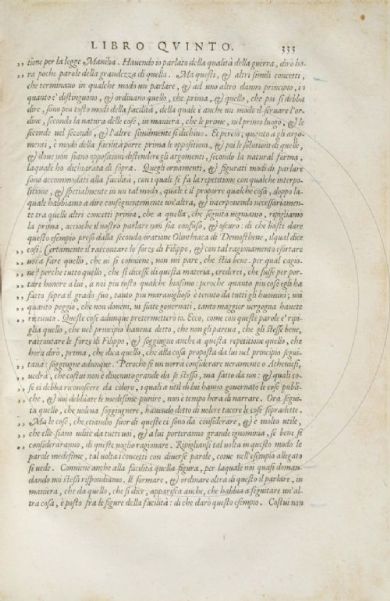 LIBRO QVINTO. 333
tione per la legge Manilia. Hauendo io parlato della qualità della guerra, dirò ho-
ra poche parole della grandezza di quella. Ma questi, & altri simili concetti,
che terminano in qualche modo un parlare, & ad uno altro danno principio, in
quanto e' distinguono, & ordinano quello, che prima, & quello, che poi si debba
dire, sono piu tosto modi della facilità, benche e' sia anche un modo il seruare l'or-
dine, secondo la natura delle cose, in maniera, che le prime, nel primo luogo, & le
seconde nel secondo, & l'altre similmente si dichino. Et perciò, quanto a gli argo-
menti, è modo della facilità porre prima le oppositioni, & poi le solutioni di quelle,
& doue non siano oppositioni distendere gli argomenti, secondo la natural forma,
laquale ho dichiarata di sopra. Quegli ornamenti, & figurati modi di parlare
sono accommodati alla facilità, con i quali si fa la repetitione con qualche interpo-
sitione, & spetialmente in un tal modo, quale è il proporre qualche cosa, doppo la-
quale habbiamo a dire conseguentemente un'altra, & interponendo necessariamen-
te tra quelle altri concetti prima, che a quella, che seguita uegnamo, repigliamo
la prima, accioche il nostro parlare non sia confuso, & oscuro: di che basti dare
questo esempio preso dalla seconda oratione Olinthiaca di Demosthene, ilqual dice
cosi. Certamente il raccontare le forze di Filippo, & con tal ragionamento esortare
uoi a fare quello, che ui si conuiene, non mi pare, che stia bene. per qual cagio-
ne? perche tutto quello, che si dicesse di questa materia, crederei, che fusse per por-
tare honore a lui, a noi piu tosto qualche biasimo: peroche quanto piu cose egli ha
fatto sopra il grado suo, tanto piu marauiglioso è tenuto da tutti gli huomini; uoi
quanto peggio, che non douete, ui siate gouernati, tanto maggior uergogna hauete
riceuuto. Queste cose adunque pretermetterò io. Ecco, come con queste parole e' ripi-
glia quello, che nel principio haueua detto, che non gli pareua, che gli stesse bene,
raccontare le forze di Filippo, & soggiugne anche a questa repetitione quello, che
hora dirò, prima, che dica quello, che alla cosa proposta da lui nel principio segui-
tana: soggiugne adunque. Peroche se un uorrà considerare ueramente o Atheniesi,
uedrà, che costui non è diuentato grande da se stesso, ma fatto da uoi: & quali co-
se ei debba riconoscere da coloro, i quali a utile di lui hanno gouernato le cose publi-
che, & uoi debbiate le medesime punire, non è tempo hora di narrare. Ora segui-
ta quello, che uoleua soggiugnere, hauendo detto di uolere tacere le cose sopradette.
Ma le cose, che etiandio fuor di queste ci sono da considerare, & è molto utile,
che elle siano udite da tutti uoi, & a lui porteranno grande ignominia, se bene si
considereranno, di queste uoglio ragionare. Ripigliansi tal uolta in questo modo le
parole medesime, tal uolta i concetti con diuerse parole, come nell'esempio allegato
si uede. Conuiene anche alla facilità quella figura, per laquale noi quasi doman-
dando noi stessi rispondiamo. Il formare, & ordinare altra di questo il parlare, in
maniera, che da quello, che si dice, apparisca anche, che habbia a seguitare un'al-
tra cosa, è posto fra le figure della facilità: di che darò questo esempio. Costui non